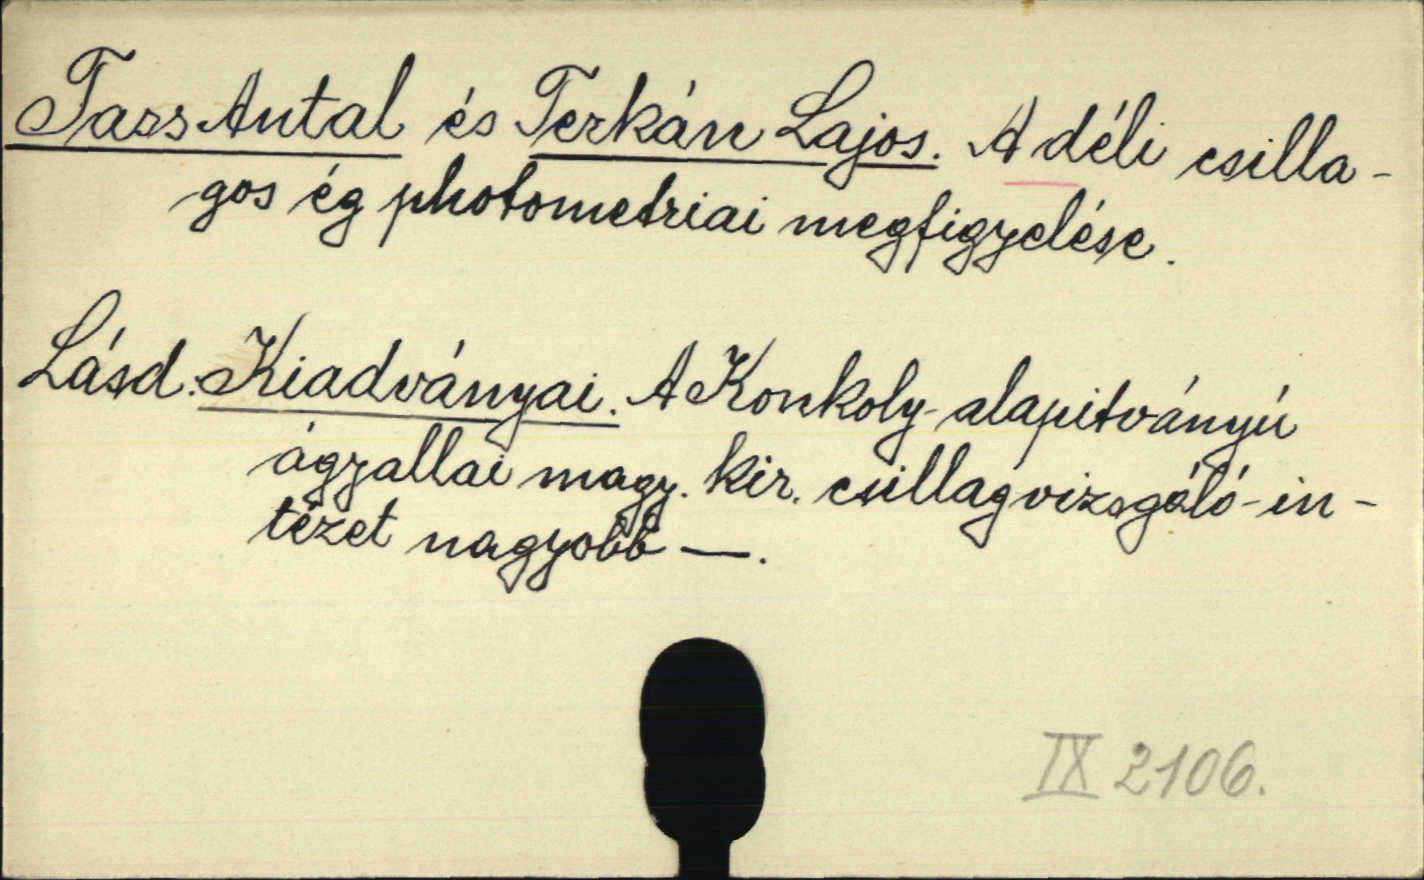 Tass Antal és Terkán Lajos. A déli csilla-
gos ég photometriai megfigyelése.
Lásd: Kiadványai. A Konkoly-alapitványú
ógyallai magy. kir. csillagvizsgáló-in-
tézet nagyobb —.
IX 2106.